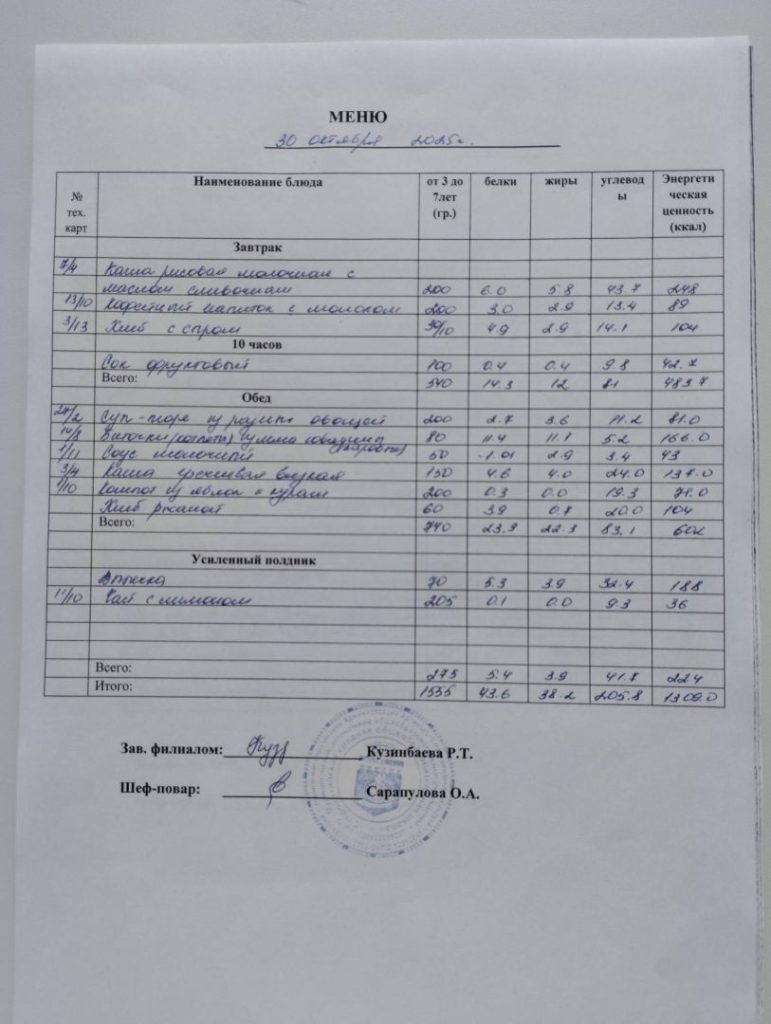 МЕНЮ
30 октября 2025г.
№ тех. карт Наименование блюда от 3 до 7лет (гр.) белки жиры углевод ы Энергети ческая ценность (ккал)
Завтрак
7/4 Каша рисовая молочная с
маслом сливочным 200 6.0 5.8 43.7 248
13/10 Кофейный напиток с молоком 200 3.0 2.9 13.4 89
3/13 Хлеб с сыром 30/10 4.9 2.9 14.1 104
10 часов
Сок фруктовый 100 0.4 0.4 9.8 42.7
Всего: 540 14.3 12 81 483.7
Обед
Суп-пюре из разных овощей 200 2.7 3.6 11.2 81.0
Биточки (котлеты) из мяса говядины 80 11.4 11.1 5.2 166.0
1/11 Соус молочный 50 -1.01 2.9 3.4 43
3/4 Каша гречневая вязкая 150 4.6 4.0 24.0 137.0
Компот из яблок + кураги 200 0.3 0.0 19.3 71.0
Хлеб ржаной 60 3.9 0.7 20.0 104
Всего: 740 23.9 22.3 83,1 602
Усиленный полдник
Выпечка 70 5.3 3.9 32.4 188
11/10 Чай с лимоном 205 0.1 0.0 9.3 36
Всего: 275 5.4 3.9 41.7 224
Итого: 1555 43.6 38.2 205.8 1309.0
Зав. филиалом: Кузинбаева Р.Т.
Шеф-повар: Сарапулова О.А.